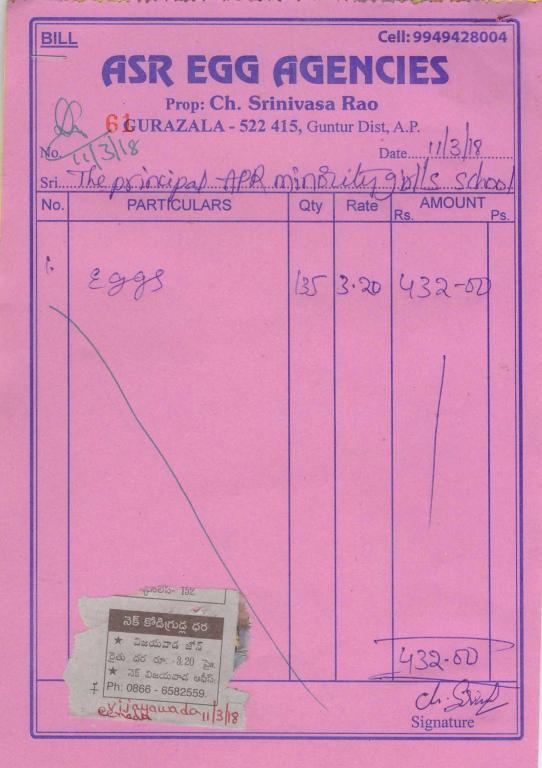 BILL
Cell: 9949428004
ASR EGG AGENCIES
Prop: Ch. Srinivasa Rao
61
GURAZALA - 522 415, Guntur Dist, A.P.
No. 11/3/18
Date 11/3/18
Sri The principal APR minority girls school
No. PARTICULARS Qty Rate AMOUNT
Rs. Ps.
1. Eggs 135 3.20 432-00
432-00
నెక్ కోడిగ్రుడ్ల ధర
★ విజయవాడ జోన్
రైతు ధర రూ. -3.20 పై.
★ నెక్ విజయవాడ ఆఫీస్:
Ph: 0866 - 6582559.
Vijayawada 11/3/18
Signature